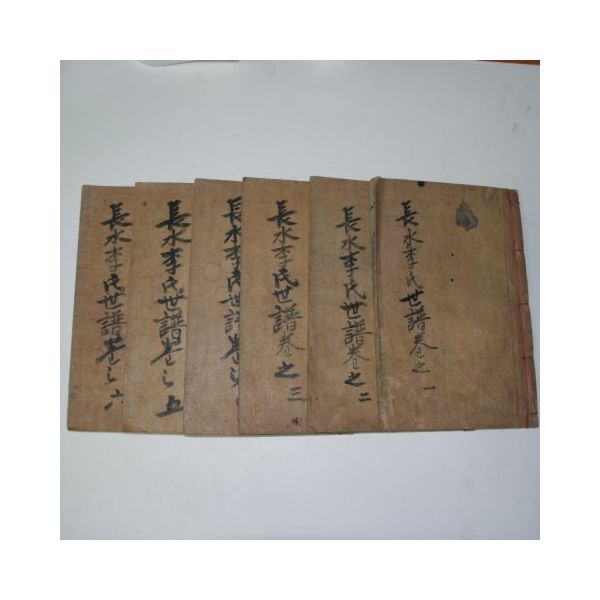 長水李氏世譜卷之一
長水李氏世譜卷之二
長水李氏世譜卷之三
長水李氏世譜卷之
長水李氏世譜卷之五
長水李氏世譜卷之六